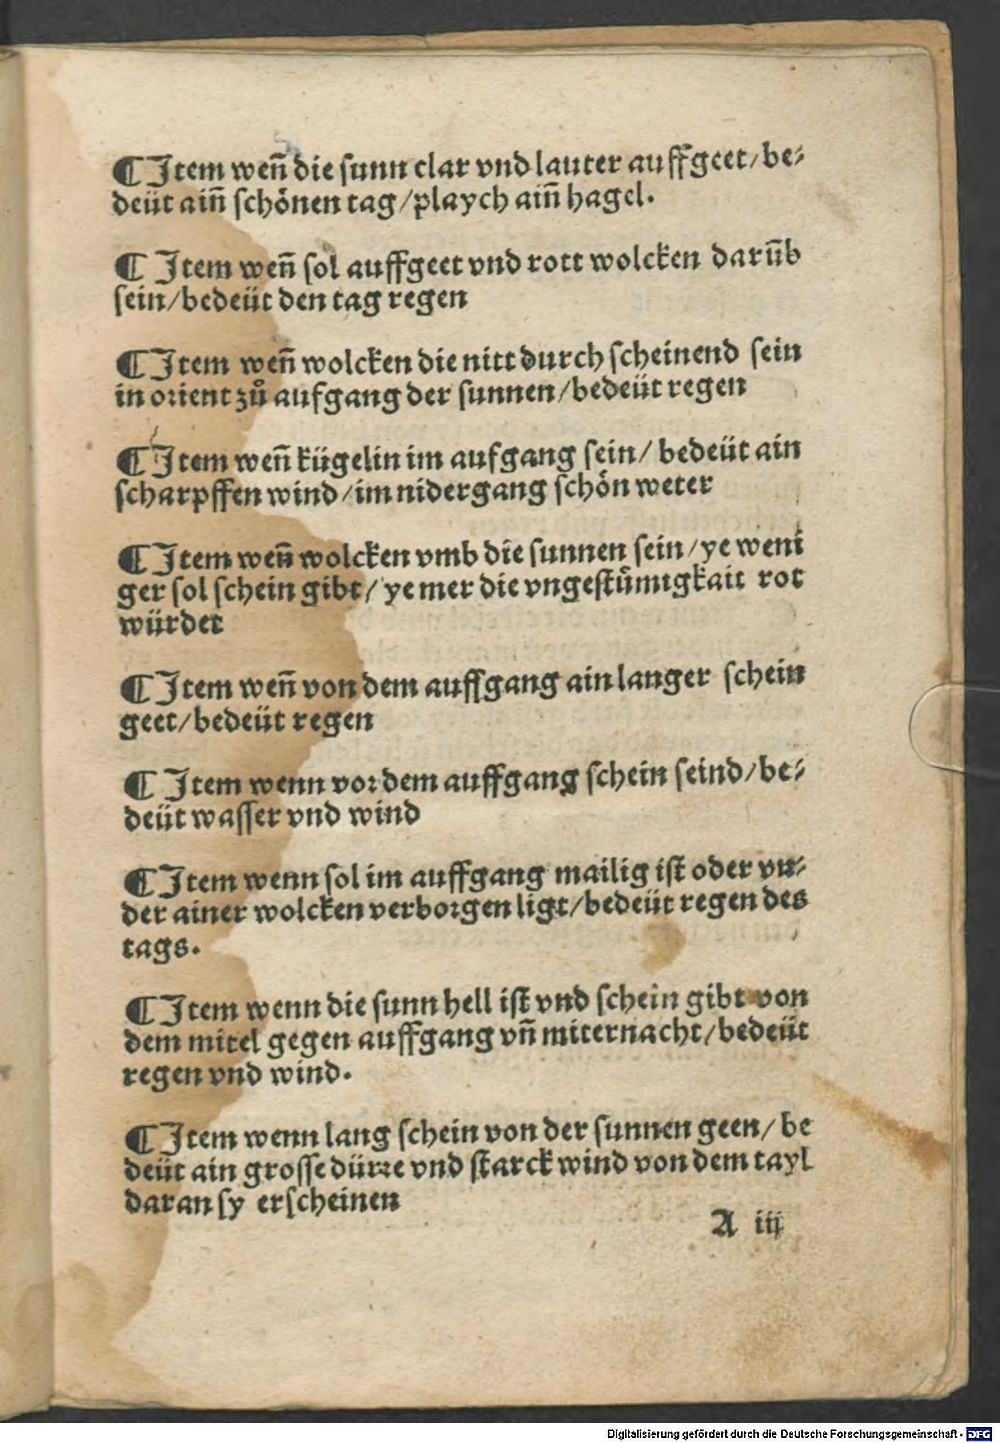 ¶ Jtem weñ die ſunn clar vnd lauter auffgeet/be⸗
deüt aiñ ſchönen tag/playch aiñ hagel.
¶ Jtem weñ ſol auffgeet vnd rott wolcken darüb
ſein/bedeüt den tag regen
¶ Jtem weñ wolcken die nitt durch ſcheinend ſein
in orient zů aufgang der ſunnen/bedeüt regen
¶ Jtem weñ kügelin im aufgang ſein/ bedeüt ain
ſcharpffen wind/im nidergang ſchön weter
¶ Jtem weñ wolcken vmb die ſunnen ſein/ye weni
ger ſol ſchein gibt/ ye mer die vngeſtůmigkait rot
würdet
¶ Jtem weñ von dem auffgang ain langer ſchein
geet/bedeüt regen
¶ Jtem wenn vor dem auffgang ſchein ſeind/be⸗
deüt waſſer vnd wind
¶ Jtem wenn ſol im auffgang mailig iſt oder vn⸗
der ainer wolcken verborgen ligt/bedeüt regen des
tags.
¶ Jtem wenn die ſunn hell iſt vnd ſchein gibt von
dem mitel gegen auffgang vñ miternacht/bedeüt
regen vnd wind.
¶ Jtem wenn lang ſchein von der ſunnen geen/ be
deüt ain groſſe dürre vnd ſtarck wind von dem tayl
daran ſy erſcheinen
A iij
Digitalisierung gefördert durch die Deutsche Forschungsgemeinschaft - DFG